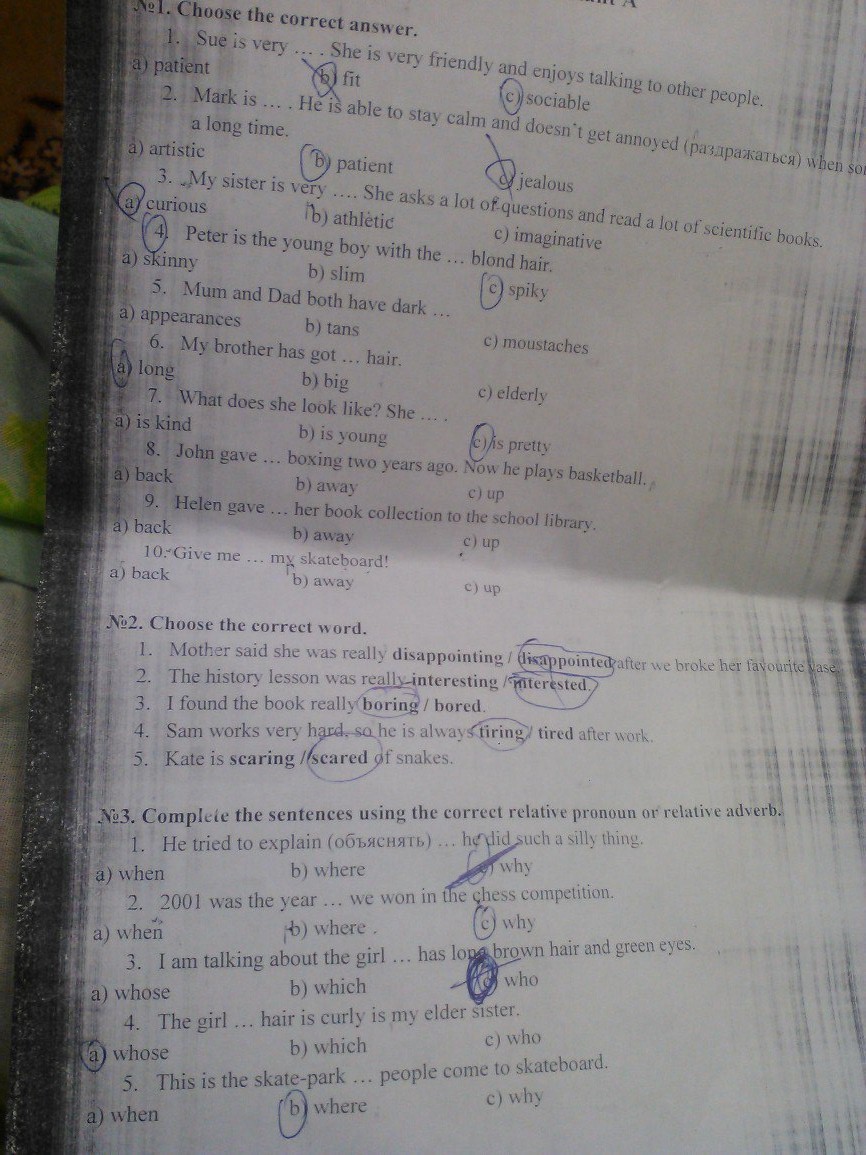 №1. Choose the correct answer.
1. Sue is very … . She is very friendly and enjoys talking to other people.
a) patient b) fit c) sociable
2. Mark is … . He is able to stay calm and doesn't get annoyed (раздражаться) when
a long time.
a) artistic b) patient c) jealous
3. My sister is very …. She asks a lot of questions and read a lot of scientific books.
a) curious b) athletic c) imaginative
4. Peter is the young boy with the … blond hair.
a) skinny b) slim c) spiky
5. Mum and Dad both have dark …
a) appearances b) tans c) moustaches
6. My brother has got … hair.
a) long b) big c) elderly
7. What does she look like? She … .
a) is kind b) is young c) is pretty
8. John gave … boxing two years ago. Now he plays basketball.
a) back b) away c) up
9. Helen gave … her book collection to the school library.
a) back b) away c) up
10. Give me … my skateboard!
a) back b) away c) up
№2. Choose the correct word.
1. Mother said she was really disappointing / disappointed after we broke her favourite vase.
2. The history lesson was really interesting / interested.
3. I found the book really boring / bored.
4. Sam works very hard, so he is always tiring / tired after work.
5. Kate is scaring / scared of snakes.
№3. Complete the sentences using the correct relative pronoun or relative adverb.
1. He tried to explain (объяснять) … he did such a silly thing.
a) when b) where c) why
2. 2001 was the year … we won in the chess competition.
a) when b) where . c) why
3. I am talking about the girl … has long brown hair and green eyes.
a) whose b) which c) who
4. The girl … hair is curly is my elder sister.
a) whose b) which c) who
5. This is the skate-park … people come to skateboard.
a) when b) where c) why